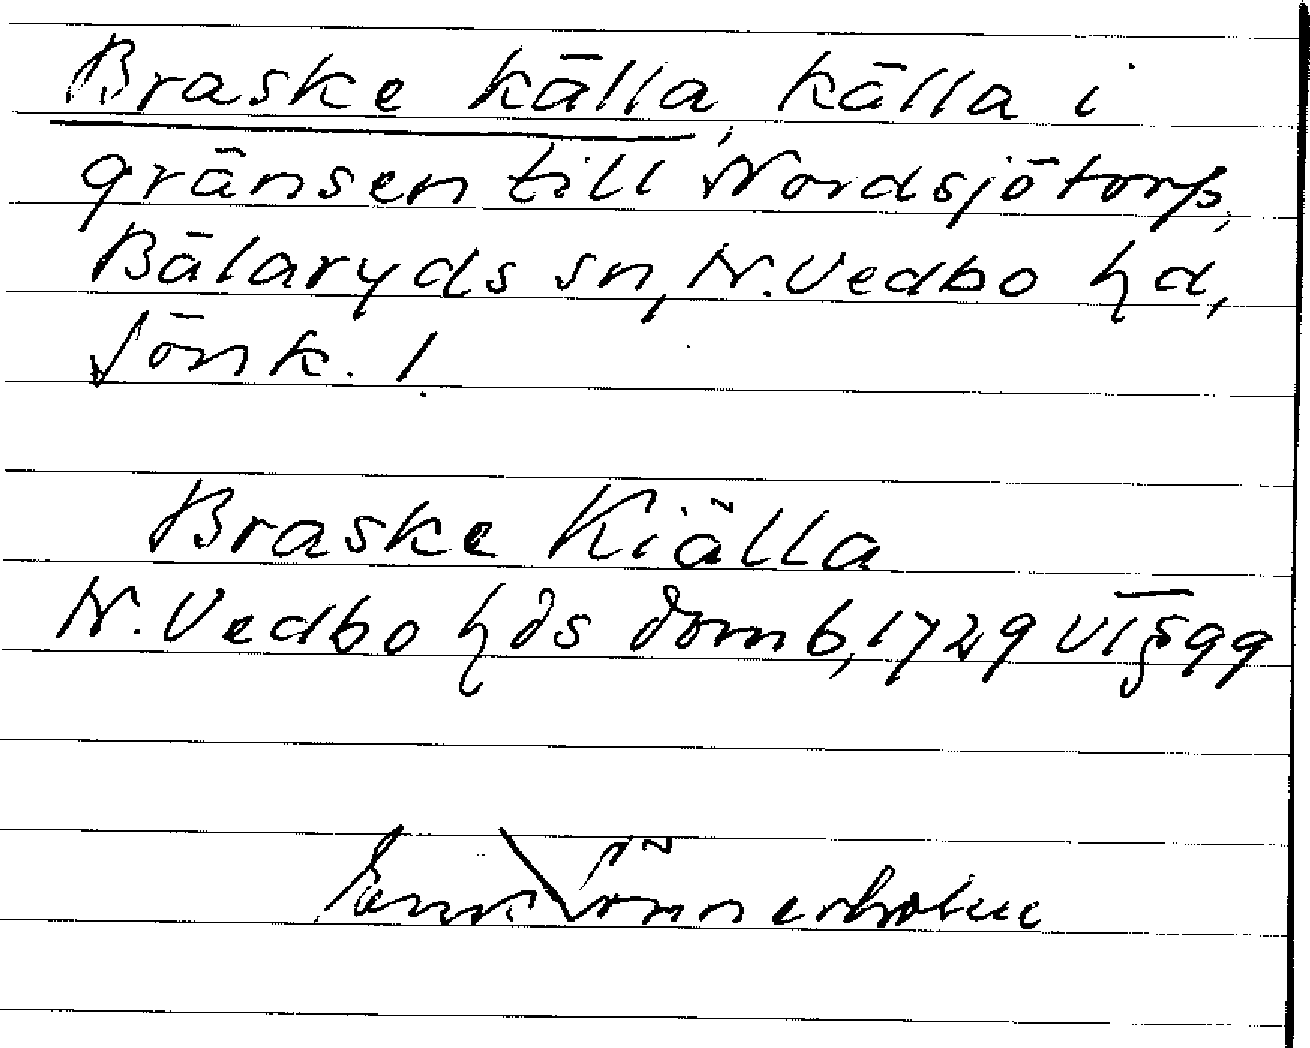 Braske källa, källa i
gränsen till Nordsjötorp,
Bälaryds sn, N. Vedbo hd,
Jönk. l.
Braske Kiälla
N. Vedbo hds domb, 1729 VI § 99